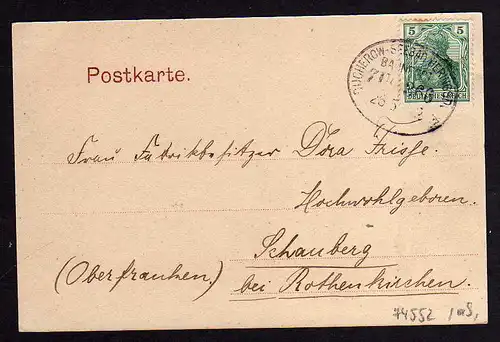 5
DEUTSCHES REICH
DUCHEROW-
BAHNPOST
Postkarte.
Frau Fabrikbesitzer Dora Frisse.
Hochwohlgeboren.
Schauberg
(Oberfranken.) bei Rothenkirchen.
74552